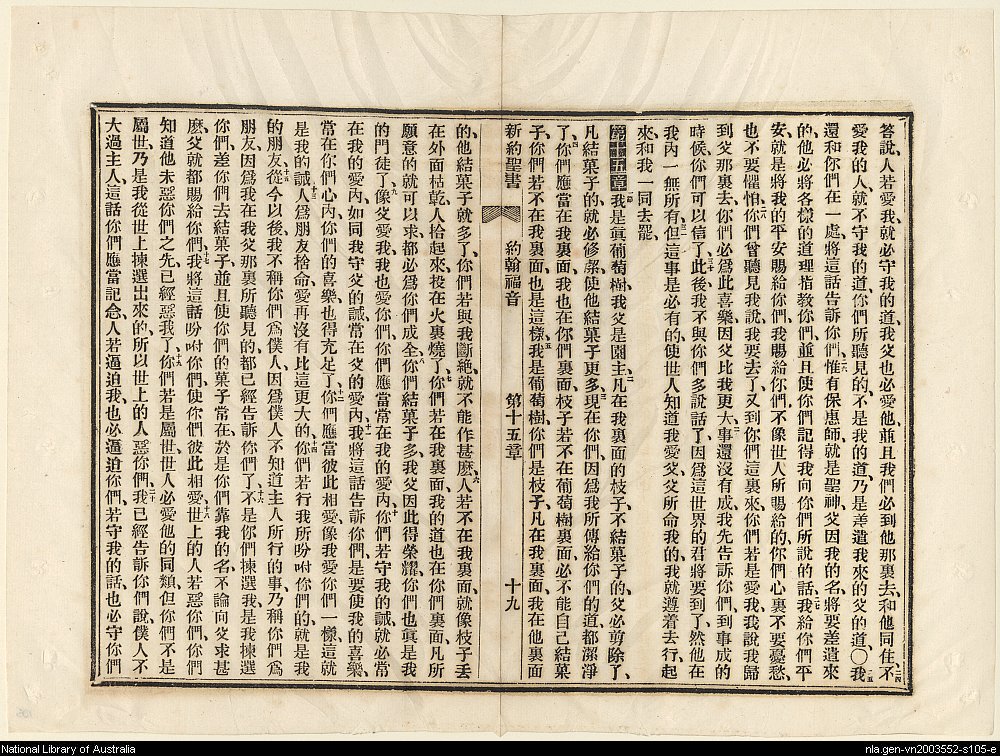 答說、人若愛我、就必守我的道、我父也必愛他、並且我們必到他那裏去、和他同住、二四不
愛我的人、就不守我的道、你們所聽見的、不是我的道、乃是差遣我來的父的道、〇二五我
還和你們在一處、將這話告訴你們、二六惟有保惠師、就是聖神、父因我的名、將要差遣來
的、他必將各樣的道理指教你們、並且使你們記得我向你們所說的話、二七我給你們平
安、就是將我的平安賜給你們、我賜給你們、不像世人所賜給的、你們心裏不要憂愁、
也不要懼怕、二八你們曾聽見我說、我要去了、又到你們這裏來、你們若是愛我、我說我歸
到父那裏去、你們必爲此喜樂、因父比我更大、二九事還沒有成、我先告訴你們、到事成的
時候、你們可以信了、三十此後我不與你們多說話了、因爲這世界的君將要到了、然他在
我內一無所有、三一但這事是必有的、使世人知道我愛父、父所命我的、我就遵着去行、起
來、和我一同去罷、
第十五章 一我是眞葡萄樹、我父是園主、二凡在我裏面的枝子、不結菓子的、父必剪除了、
凡結菓子的、就必修潔、使他結菓子更多、三現在你們因爲我所傳給你們的道、都潔淨
了、四你們應當在我裏面、我也在你們裏面、枝子若不在葡萄樹裏面、必不能自己結菓
子、你們若不在我裏面、也是這樣、五我是葡萄樹、你們是枝子、凡在我裏面、我在他裏面
新約聖書 約翰福音 第十五章 十九
的、他結菓子就多了、你們若與我斷絶、就不能作甚麽、六人若不在我裏面、就像枝子丟
在外面枯乾、人拾起來、投在火裏燒了、七你們若在我裏面、我的道也在你們裏面、凡所
願意的、就可以求、都必爲你們成全、八你們結菓子多、我父因此得榮耀、你們也眞是我
的門徒了、九像父愛我、我也愛你們、你們應當常在我的愛內、十你們若守我的誡、就必常
在我的愛內、如同我守父的誡、常在父的愛內、十一我將這話告訴你們、是要使我的喜樂
常在你們心內、你們的喜樂也得充足了、十二你們應當彼此相愛、像我愛你們一樣、這就
是我的誡、十三人爲朋友捨命、愛再沒有比這更大的、十四你們若行我所吩咐你們的、就是我
的朋友、十五從今以後、我不稱你們爲僕人、因爲僕人不知道主人所行的事、乃稱你們爲
朋友、因爲我在我父那裏所聽見的、都已經告訴你們了、十六不是你們揀選我、是我揀選
你們、差你們去結菓子、並且使你們的菓子常在、於是你們靠我的名、不論向父求甚
麽、父就都賜給你們、十七我將這話吩咐你們、使你們彼此相愛、十八世上的人若惡你們、你們
知道他未惡你們之先、已經惡我了、十九你們若是屬世、世人必愛他的同類、但你們不是
屬世、乃是我從世上揀選出來的、所以世上的人惡你們、二十我已經告訴你們說、僕人不
大過主人、這話你們應當記念、人若逼迫我、也必逼迫你們、若守我的話、也必守你們
National Library of Australia
nla.gen-vn2003552-s105-e